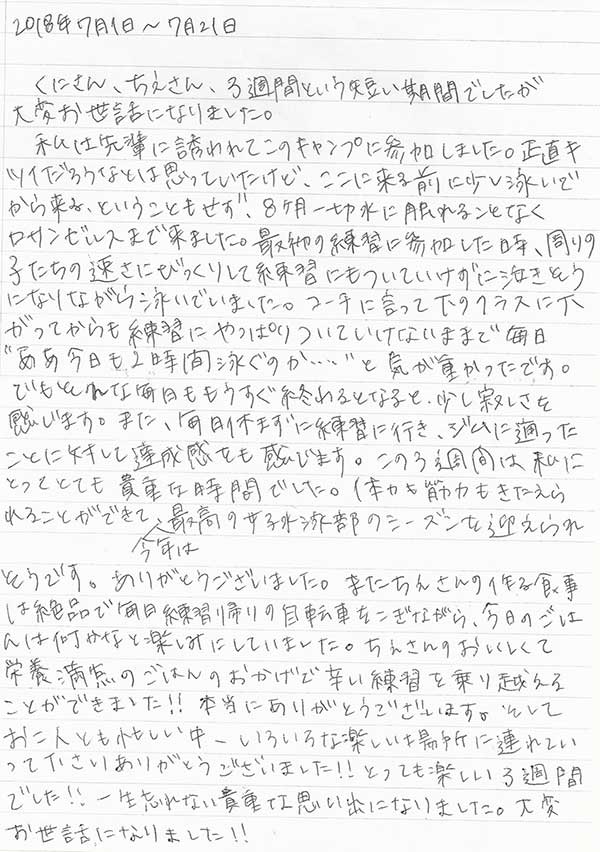 2018年7月1日〜7月21日
くにさん、ちえさん、3週間という短い期間でしたが
大変お世話になりました。
私は先輩に誘われてこのキャンプに参加しました。正直キ
ツイだろうなとは思っていたけど、ここに来る前に少し泳いで
から来る、ということもせず、8ヶ月一切水に触れることなく
ロサンゼルスまで来ました。最初の練習に参加した時、周りの
子たちの速さにびっくりして練習にもついていけずに泣きそう
になりながら泳いでいました。コーチに言って下のクラスに下
がってからも練習にやっぱりついていけないままで毎日
"ああ今日も2時間泳ぐのか……"と気が重かったです。
でもそんな毎日ももうすぐ終わるとなると、少し寂しさを
感じます。また、毎日休まずに練習に行き、ジムに通った
ことに対して達成感をも感じます。この3週間は私に
とってとても貴重な時間でした。体力も筋力もきたえら
れることができて、最高の女子水泳部のシーズンを迎えられ
今年は
そうです。ありがとうございました。またちえさんの作る食事
は絶品で毎日練習帰りの自転車をこぎながら、今日のごは
んは何かなと楽しみにしていました。ちえさんのおいしくて
栄養満点のごはんのおかげで辛い練習を乗り越える
ことができました!! 本当にありがとうございます。そして
お二人ともお忙しい中、いろいろな楽しい場所に連れてい
って下さりありがとうございました!! とっても楽しい3週間
でした!! 一生忘れない貴重な思い出になりました。大変
お世話になりました!!